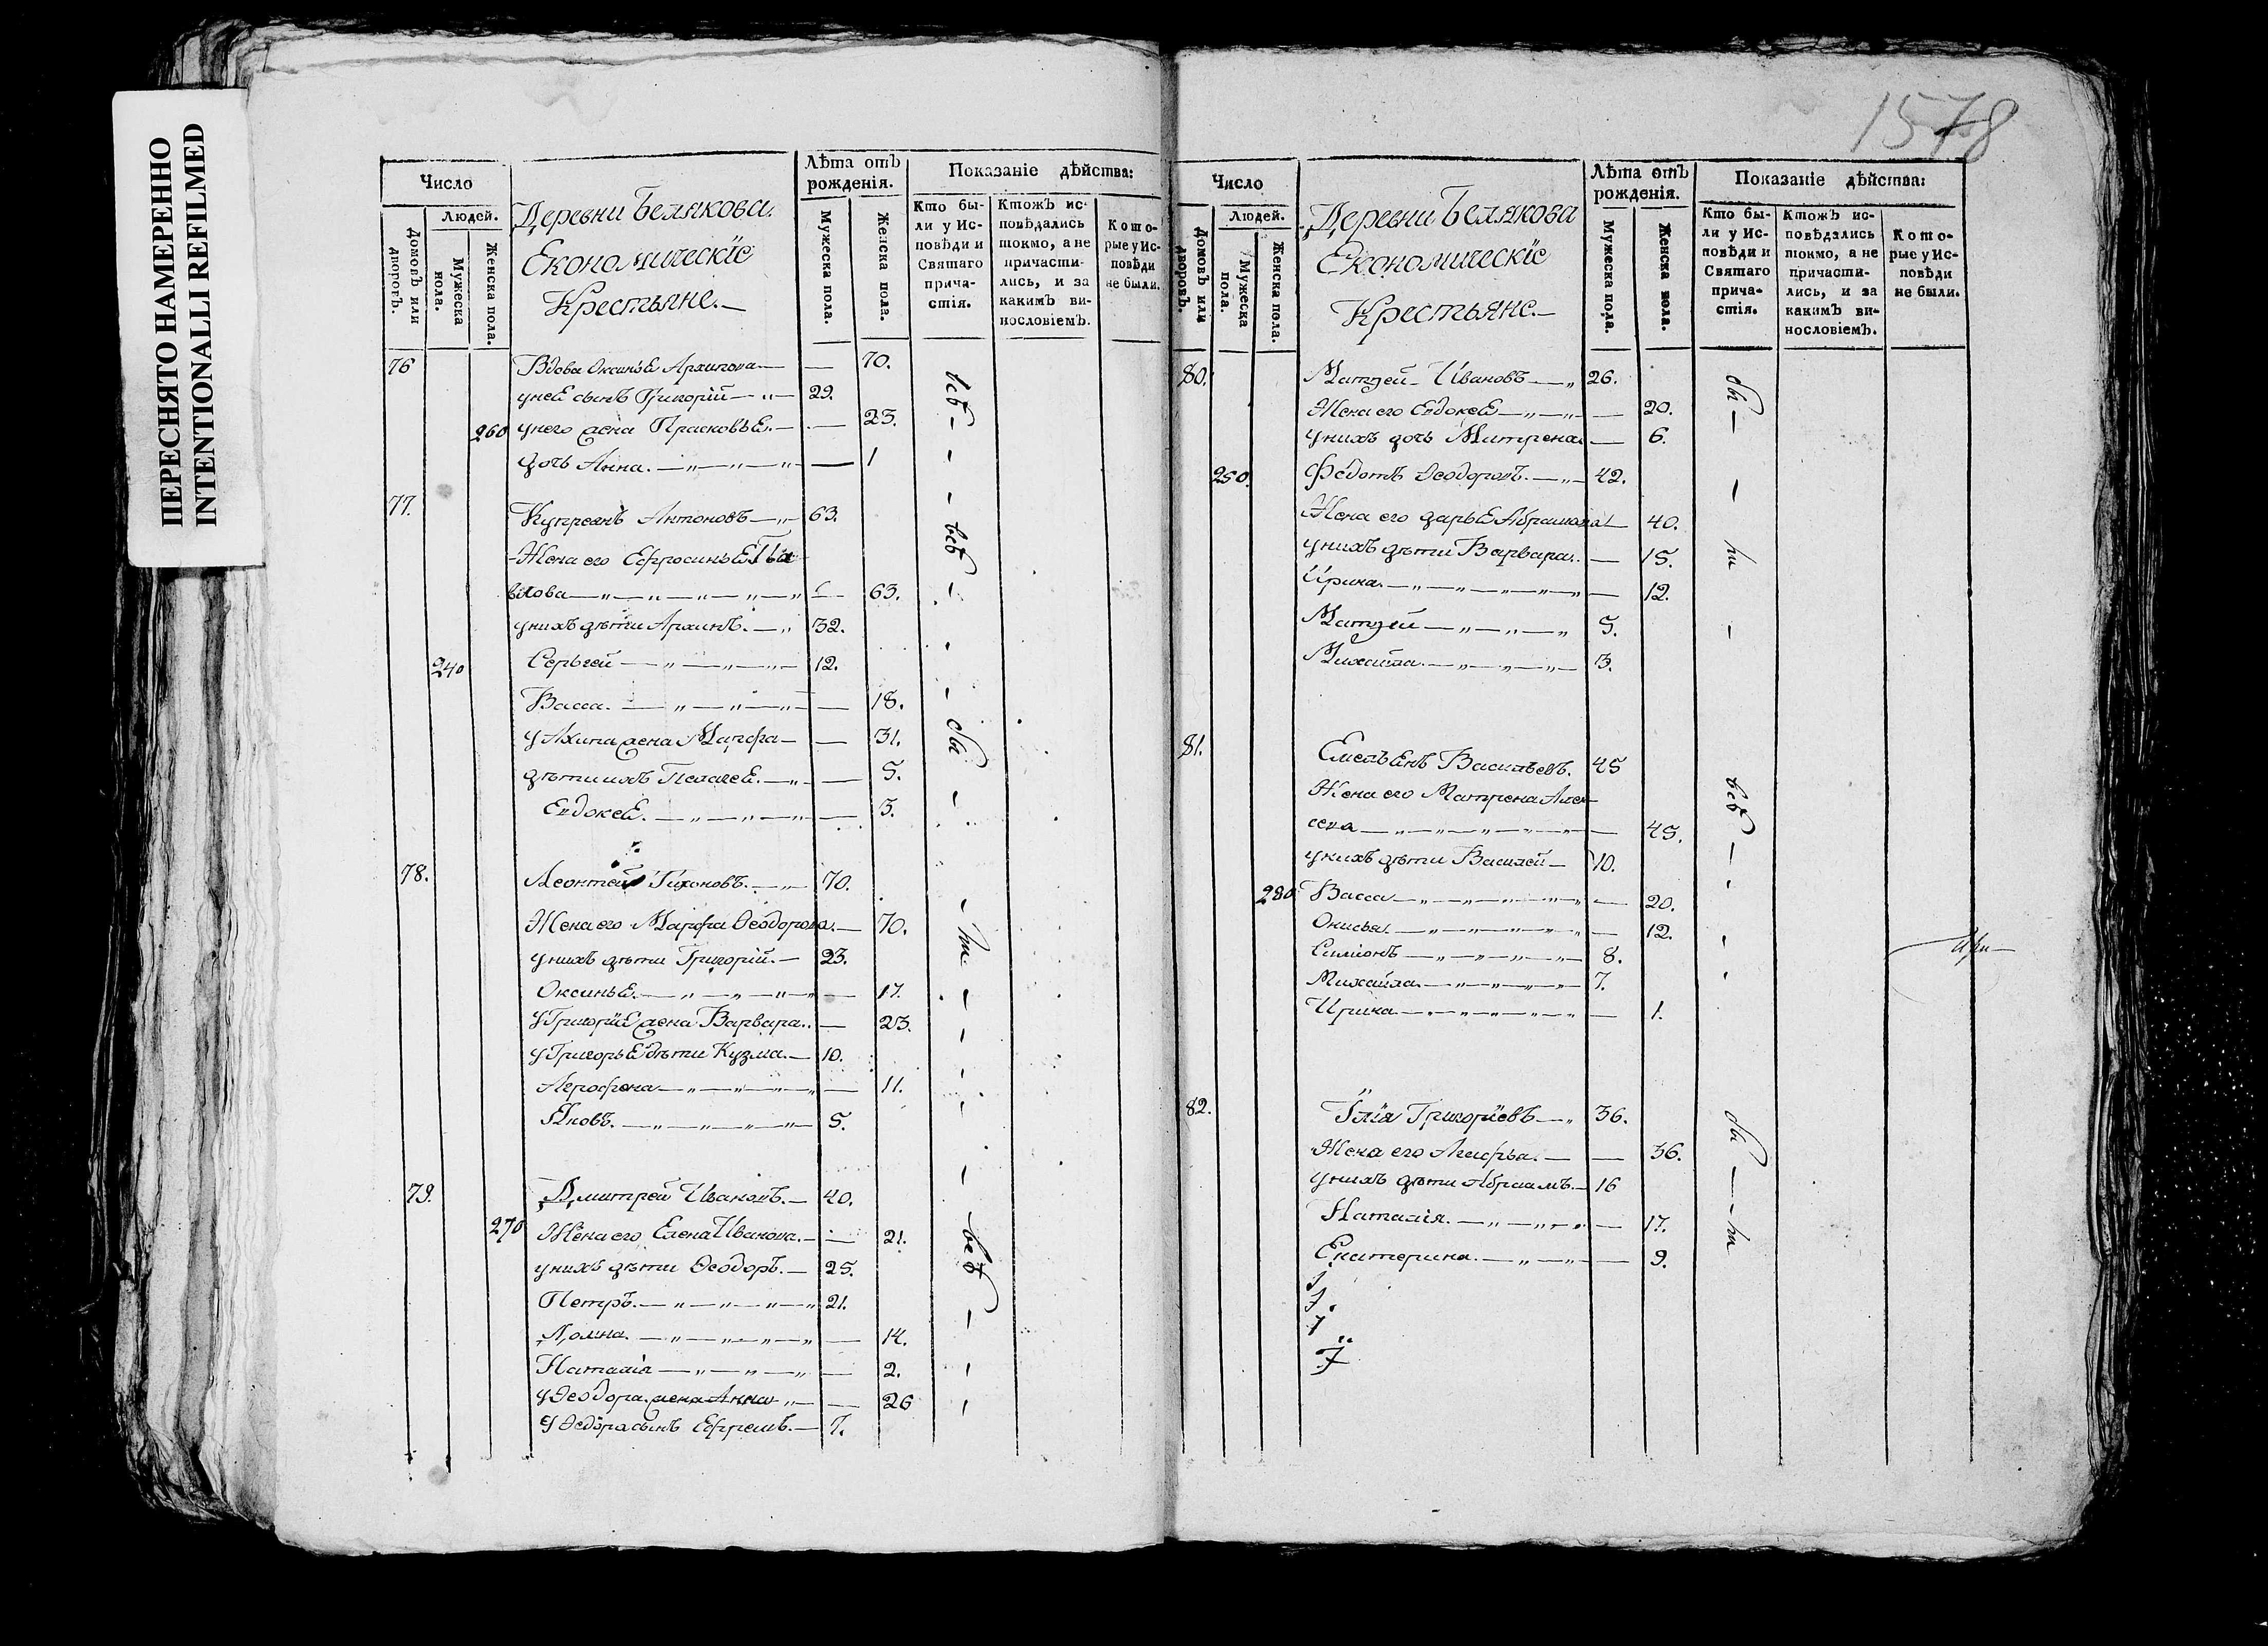 ПЕРЕСНЯТО НАМЕРЕННО
INTENTIONALLI REFILMED
1578
Число
Людей.
Домовъ или дворовъ.
Мужеска пола.
Женска пола.
Деревни Белякова.
Економическїе
Крестьяне.
Лѣта отъ рожденія.
Мужеска пола.
Женска пола.
Показаніе дѣйства:
Кто бы-
ли у Ис-
повѣди и
Святаго
прича-
стія.
Ктожъ ис-
повѣдались
токмо, а не
причасти-
лись, и за
какимъ ви-
нословіемъ.
Кото-
рые у Ис-
повѣди
не были.
76 Вдова Оксинья Архипова — 70.
унея сынъ Григорій — 29.
260 унего жена Прасковья. — 23.
дочь Анна. — 1
77. Купреянъ Антоновъ — 63.
Жена его Ефросинья
63.
унихъ дѣти Архипъ. — 32.
240 Сергей — 12.
Васса. — 18.
у Ахипа жена Марфа — 31.
дѣти ихъ Пелагея. — 5.
Евдокея. — 3.
78. Леонтей Тихоновъ. — 70.
Жена его Марфа Ѳеодорова. — 70.
унихъ дѣти Григорій. — 23.
Оксинья. — 17.
у Григорїя жена Варвара. — 23.
у Григорья дѣти Кузма. — 10.
Аерофена — 11.
Яковъ. — 5.
79. Дмитрей Ивановъ. — 40.
270 Жена его Елена Иванова. — 21.
унихъ дѣти Ѳеодоръ. — 25.
Петръ. — 21.
Домна. — 14.
Наталія — 2.
у Ѳеодора жена Анна — 26
у Ѳедора сынъ Ефремъ. — 7.
Число
Людей.
Домовъ или дворовъ.
Мужеска пола.
Женска пола.
Деревни Белякова
Економическїе
Крестьяне.
Лѣта отъ рожденія.
Мужеска пола.
Женска пола.
Показаніе дѣйства:
Кто бы-
ли у Ис-
повѣди и
Святаго
прича-
стія.
Ктожъ ис-
повѣдались
токмо, а не
причасти-
лись, и за
какимъ ви-
нословіемъ.
Кото-
рые у Ис-
повѣди
не были.
80. Матѳей Ивановъ — 26.
Жена его Евдокея — 20.
унихъ дочь Митрена — 6.
250. Федотъ Ѳеодоровъ. — 42.
Жена его дарья Абрамова — 40.
унихъ дѣти Варвара. — 15.
Ирина. — 12.
Матѳей — 5.
Михайла. — 3.
81. Емельянъ Васильевъ. 45
Жена его Матрена Алек
сева — 45.
унихъ дѣти Василей — 10.
280 Васса — 20.
Онисья. — 12.
Симіонъ — 8.
Михайла. — 7.
Ирина — 1.
82. Илїя Григорїевъ — 36.
Жена его Агафья. — 36.
унихъ дѣти Абраамъ. — 16
Наталія. — 17.
Екатерина. — 9.